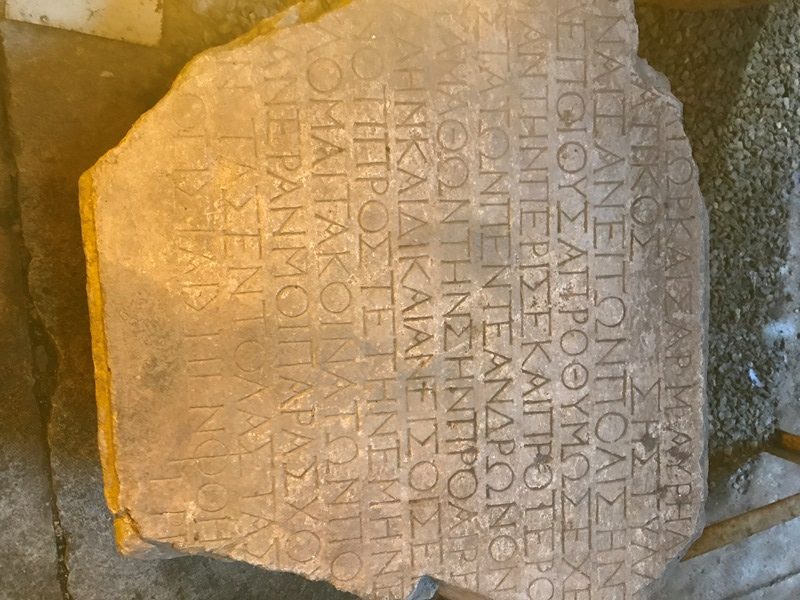 ΤΟΡΚΑΙΣΑΡΜΑΥΡΗΛ
ΑΤΙΚΟΣ ΣΗΣΤΥΛΛ
ΝΑΙΞΑΝΕΙΤΩΝΠΟΛΙΣΗΝΕ
ΕΠΙΟΥΣΑΠΡΟΘΥΜΩΣΕΧΕ
ΑΝΤΗΝΠΕΡΙΣΕΚΑΙΠΡΟΤΕΡΟ
ΣΤΑΤΩΝΠΕΝΤΕΑΝΔΡΩΝΟΝ
ΑΜΑΘΩΝΤΗΝΣΗΝΠΡΟΑΙΡΕ
ΛΗΝΚΑΙΔΙΚΑΙΑΝΕΙΣΟΙΣΕ
ΟΤΗΠΡΟΣΤΕΤΗΝΕΜΗΝΕ
ΛΟΜΑΙΤΑΚΟΙΝΑΤΩΝΠΟ
ΑΝΕΡΑΝΜΟΙΠΑΡΑΣΧΟ
Ν ΤΑΣΕΝΤΟΛΑΣΤΑΣ